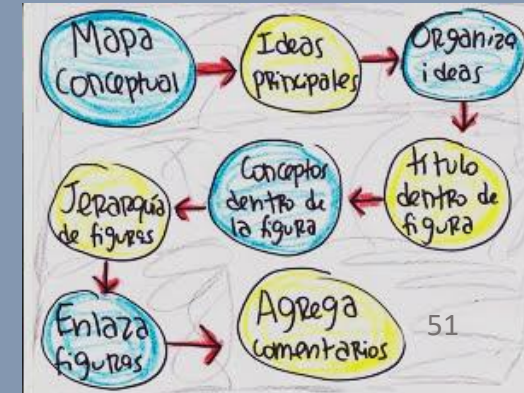 Mapa
Conceptual
Ideas
principales
Organiza
ideas
título
dentro de
figura
Conceptos
dentro de
la figura
Jerarquía
de figuras
Enlaza
figuras
Agrega
comentarios
51